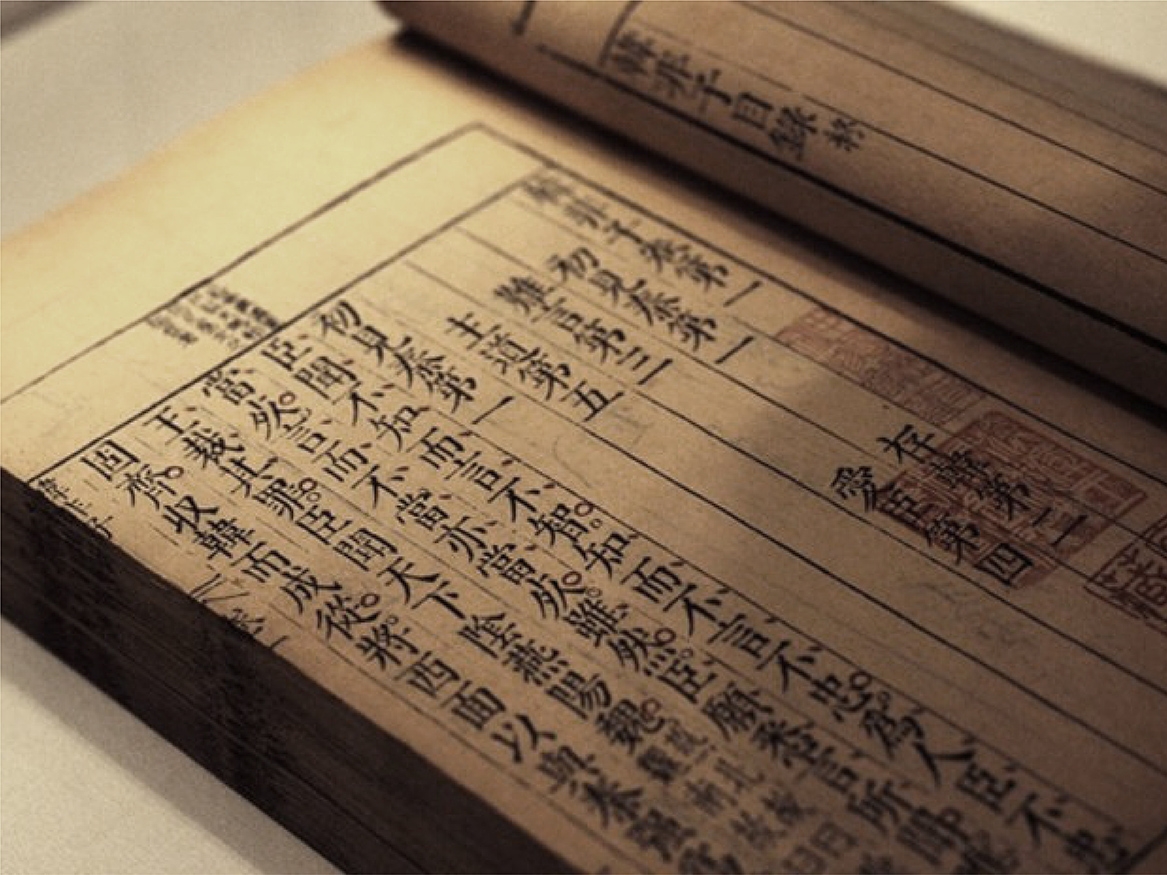 韓非子目錄終
韓非子卷第一
初見秦第一 存韓第二
難言第三 愛臣第四
主道第五
初見秦第一
臣聞、不知而言、不智。知而不言、不忠。爲人臣、不忠
當、死。言而不當、亦當死。雖然。臣、願悉言所聞
王、裁其罪。臣聞天下陰燕陽魏。
固齊。收韓而成從。將西面以與秦強